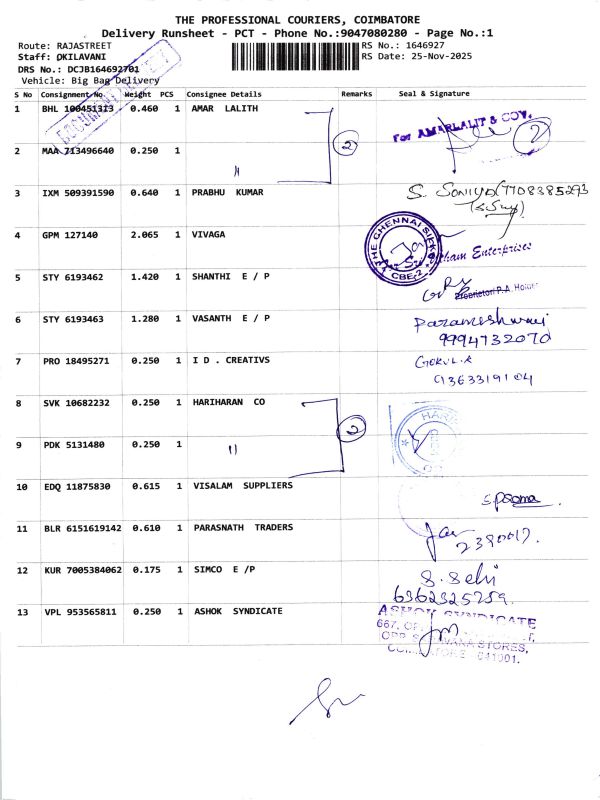 THE PROFESSIONAL COURIERS, COIMBATORE
Delivery Runsheet - PCT - Phone No.:9047080280 - Page No.:1
Route: RAJASTREET RS No.: 1646927
Staff: DKILAVANI RS Date: 25-Nov-2025
DRS No.: DCJB164692701
Vehicle: Big Bag Delivery
S No Consignment No. Weight PCS Consignee Details Remarks Seal & Signature
1 BHL 100451313 0.460 1 AMAR LALITH For AMARLALIT & COY. 2
2 MAA 713496640 0.250 1 " 2
3 IXM 509391590 0.640 1 PRABHU KUMAR S. Soniya (7708385293
4 GPM 127140 2.065 1 VIVAGA THE CHENNAI SILKS CBE-2
Enterprises
5 STY 6193462 1.420 1 SHANTHI E / P
Proprietor P.A.
6 STY 6193463 1.280 1 VASANTH E / P Parameshwari
9994732070
7 PRO 18495271 0.250 1 I D . CREATIVS Gokul.R
9363319104
8 SVK 10682232 0.250 1 HARIHARAN CO 2
9 PDK 5131480 0.250 1 "
10 EDQ 11875830 0.615 1 VISALAM SUPPLIERS
11 BLR 6151619142 0.610 1 PARASNATH TRADERS
2390017.
12 KUR 7005384062 0.175 1 SIMCO E /P S. Selvi
6362325259.
13 VPL 953565811 0.250 1 ASHOK SYNDICATE ASHOK SYNDICATE
667,
OPP. STORES,
COIMBATORE - 641001.